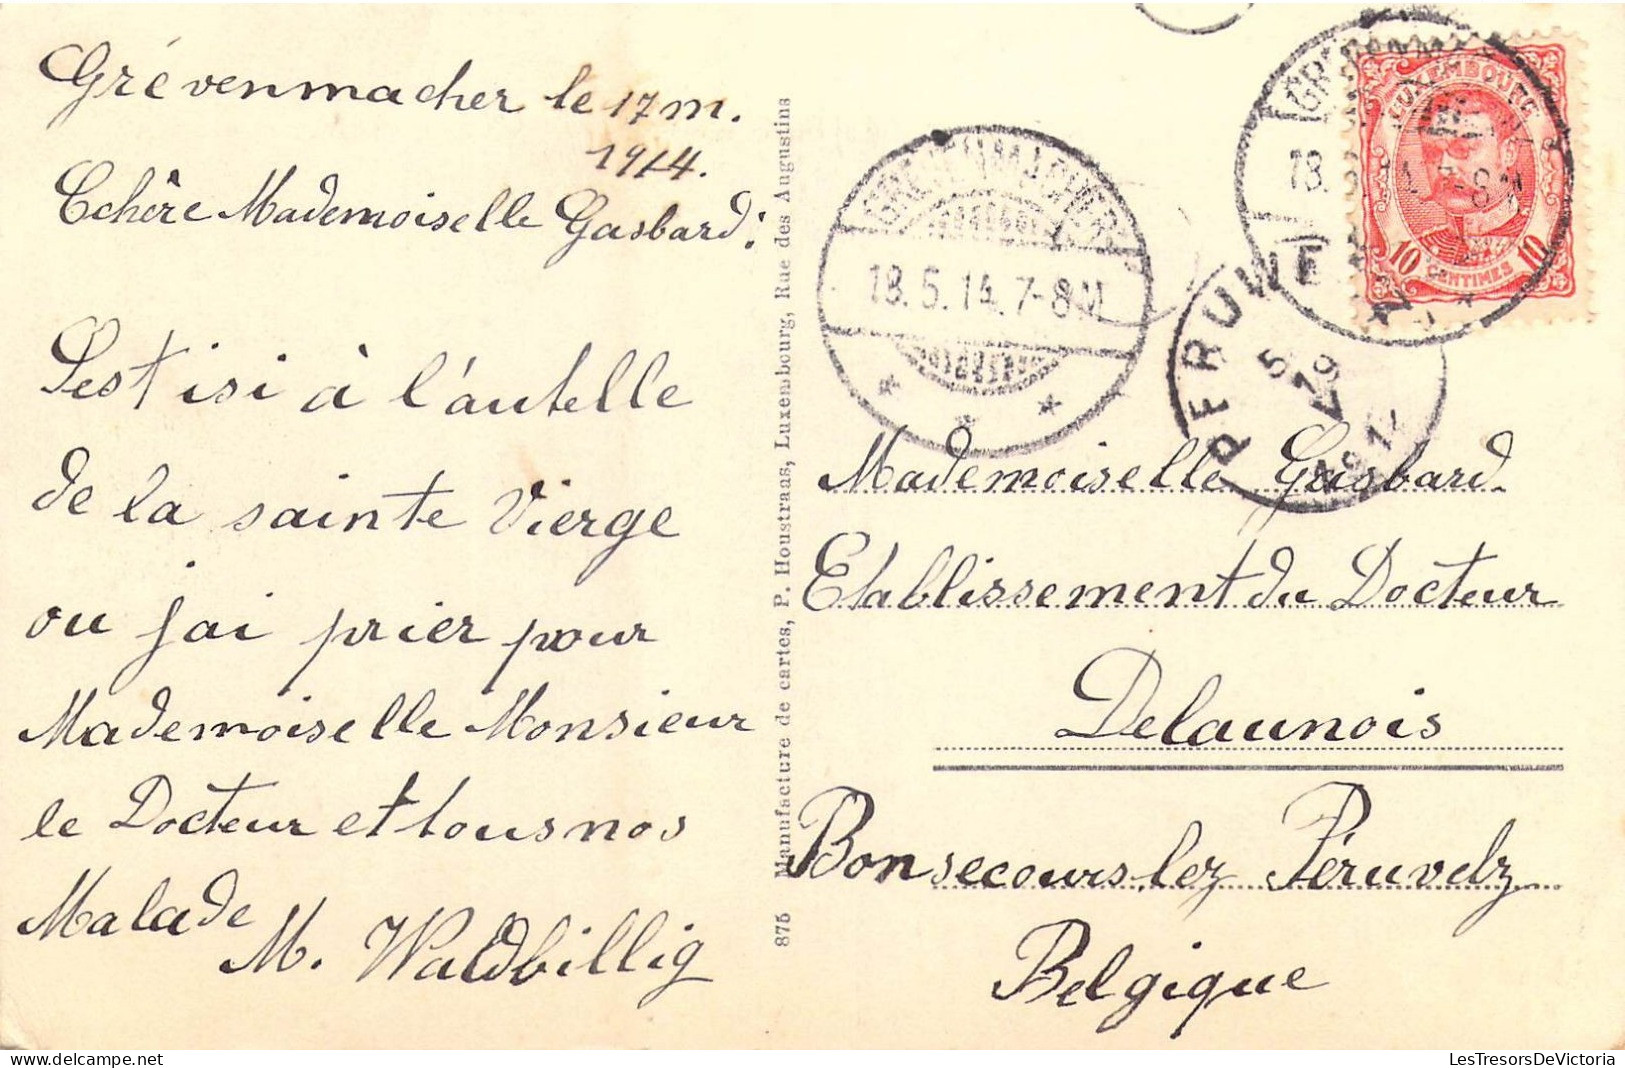 Grévenmacher le 17 m.
1914.
Tchère Mademoiselle Gasbard:
Sest isi à l'autelle
de la sainte Vierge
ou j'ai prier pour
Mademoiselle Monsieur
le Docteur et tous nos
Malade
M. Waldbillig
875 Manufacture de cartes, P. Houstraas, Luxembourg, Rue des Augustins
18.5.14. 7-8M
LUXEMBOURG
10 CENTIMES 10
PERUWE
5
19
Mademoiselle Gasbard.
Etablissement du Docteur
Delaunois
Bonsecours lez Péruvelz
Belgique
LesTresorsDeVictoria